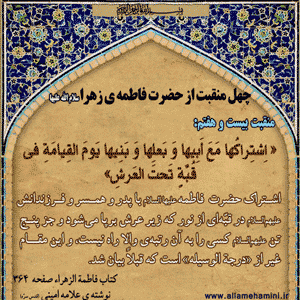 چهل منقبت از حضرت فاطمه ی زهرا سلام الله علیها
منقبت بیست و هفتم:
« اِشتراکها مَعَ أبیها وَ بَعلها وَ بَنیها یَومَ القیامَةِ فی
قُبَّةٍ تَحتَ العَرشِ»
اشتراک حضرت فاطمه علیها السلام با پدر و همسر و فرزندانش
علیهم السلام در قبّه‌ای از نور که زیر عرش برپا می‌شود و جز پنج
تن علیهم السلام کسی را به آن رتبه‌ی والا راه نیست، و این مقام
غیر از «درجة الوسیله» است که قبلاً بیان شد.
کتاب فاطمة الزهراء صفحه ۳۶۴
نوشته ی علامه امینی
www.allamehamini.ir